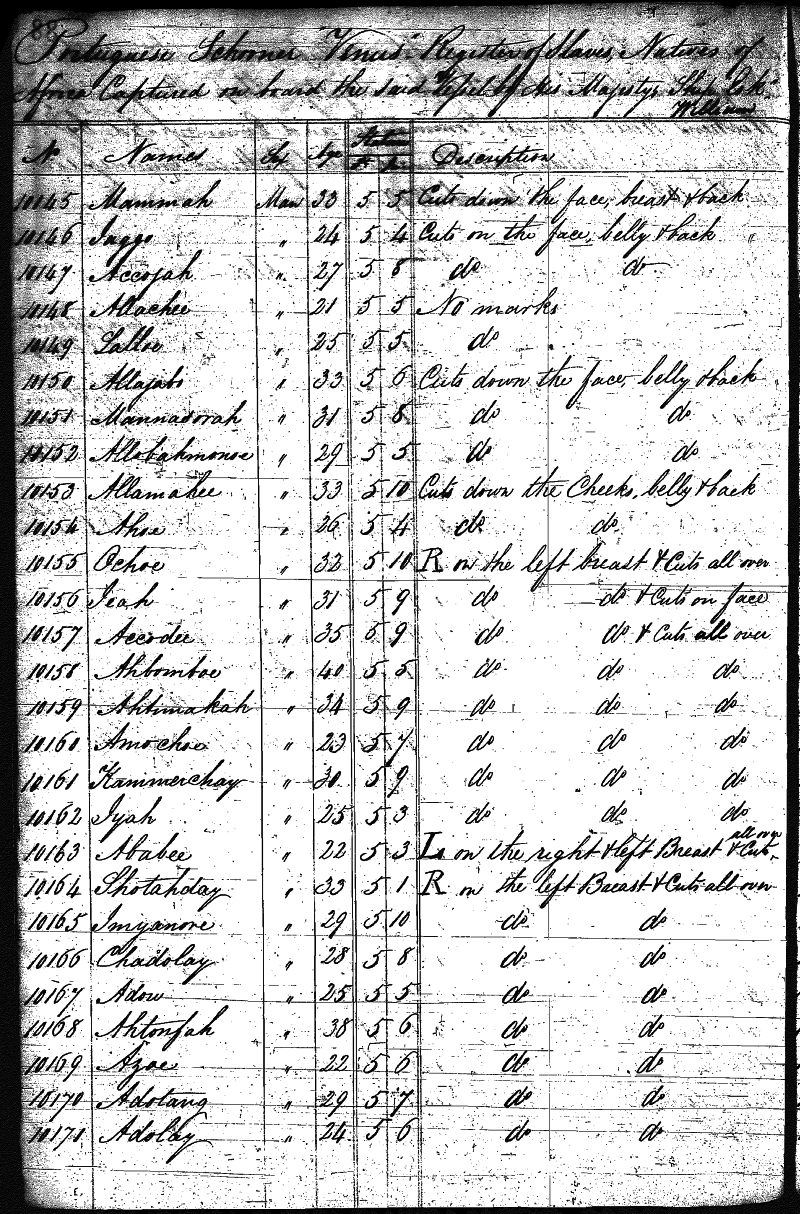 88
Portuguese Schooner "Venus" Register of Slaves, Natives of
Africa Captured on board the said Vessel by His Majestys Ship Esk
William
No Names Sex Age Stature Description
Ft In
10145 Mammah Man 33 5 5 Cuts down the face, breast & back
10146 Jaggo " 24 5 4 Cuts on the face, belly & back
10147 Accojah " 27 5 8 do do
10148 Allachee " 21 5 5 No marks
10149 Lalloe " 25 5 5 do
10150 Allajabo " 33 5 6 Cuts down the face, belly & back
10151 Mannadorah " 31 5 8 do do
10152 Allobahmonoe " 29 5 5 do do
10153 Allamahee " 33 5 10 Cuts down the Cheeks, belly & back
10154 Ahoe " 26 5 4 do do
10155 Ochoe " 32 5 10 R on the left breast & Cuts all over
10156 Jeah " 31 5 9 do do & Cuts on face
10157 Accodee " 35 5 9 do do & Cuts all over
10158 Ahbomboe " 40 5 5 do do do
10159 Ahtimakah " 34 5 9 do do do
10160 Amochoe " 23 5 7 do do do
10161 Kammerchay " 30 5 9 do do do
10162 Iyah " 25 5 3 do do do
10163 Ababee " 22 5 3 L on the right & left Breast & Cuts all over
10164 Shotahday " 33 5 1 R on the left Breast & Cuts all over
10165 Imyanore " 29 5 10 do do
10166 Chadolay " 28 5 8 do do
10167 Adow " 25 5 5 do do
10168 Ahtonfah " 38 5 6 do do
10169 Azoe " 22 5 6 do do
10170 Adotang " 29 5 7 do do
10171 Adolay " 24 5 6 do do